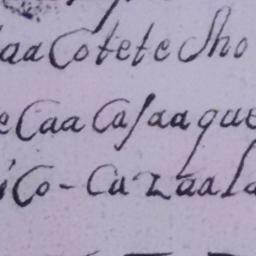 aa Cotete Sho
e Caa Casaaque
ico - Cazaala